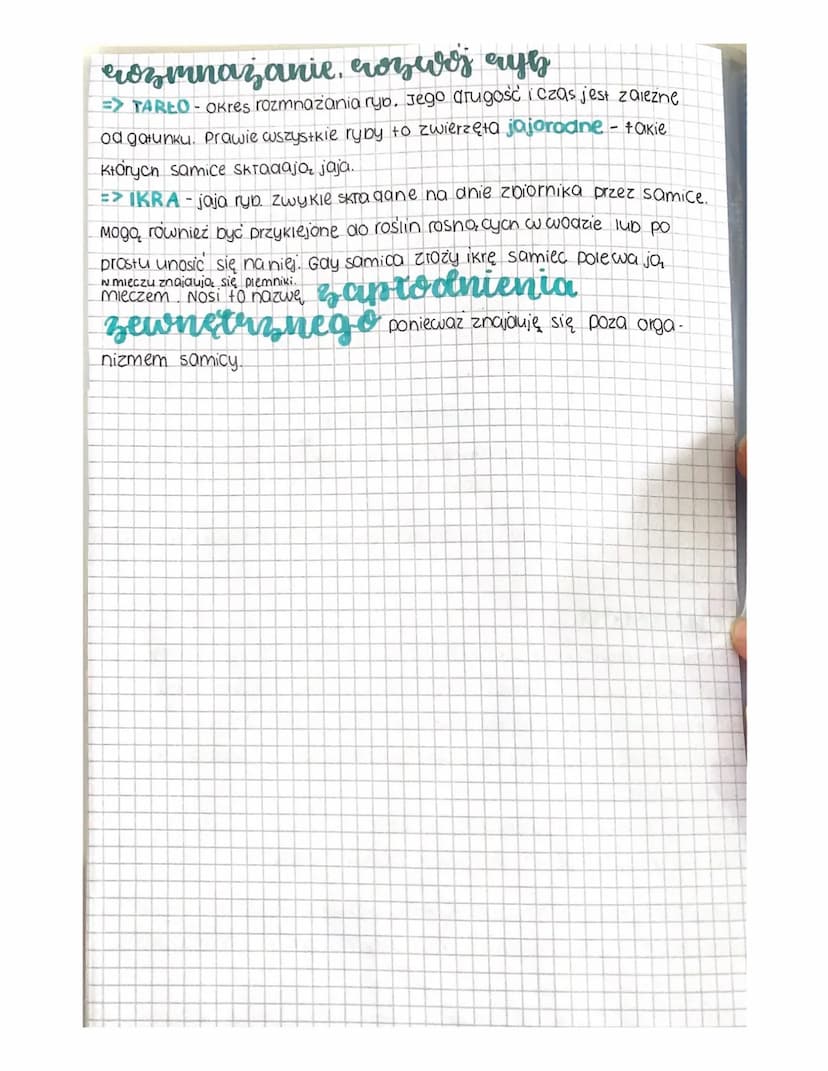 rozmnażanie, rozwój ryb
=> TARŁO - okres rozmnażania ryb. Jego długość i czas jest zależne
od gatunku. Prawie wszystkie ryby to zwierzęta jajorodne - takie
których samice składają jaja.
=> IKRA - jaja ryb. Zwykle składane na dnie zbiornika przez samice.
Mogą również być przyklejone do roślin rosnących w wodzie lub po
prostu unosić się na niej. Gdy samica złoży ikrę samiec polewa ją
w mleczu znajdują się plemniki.
mleczem. Nosi to nazwę zapłodnienia
zewnętrznego ponieważ znajduję się poza orga-
nizmem samicy.